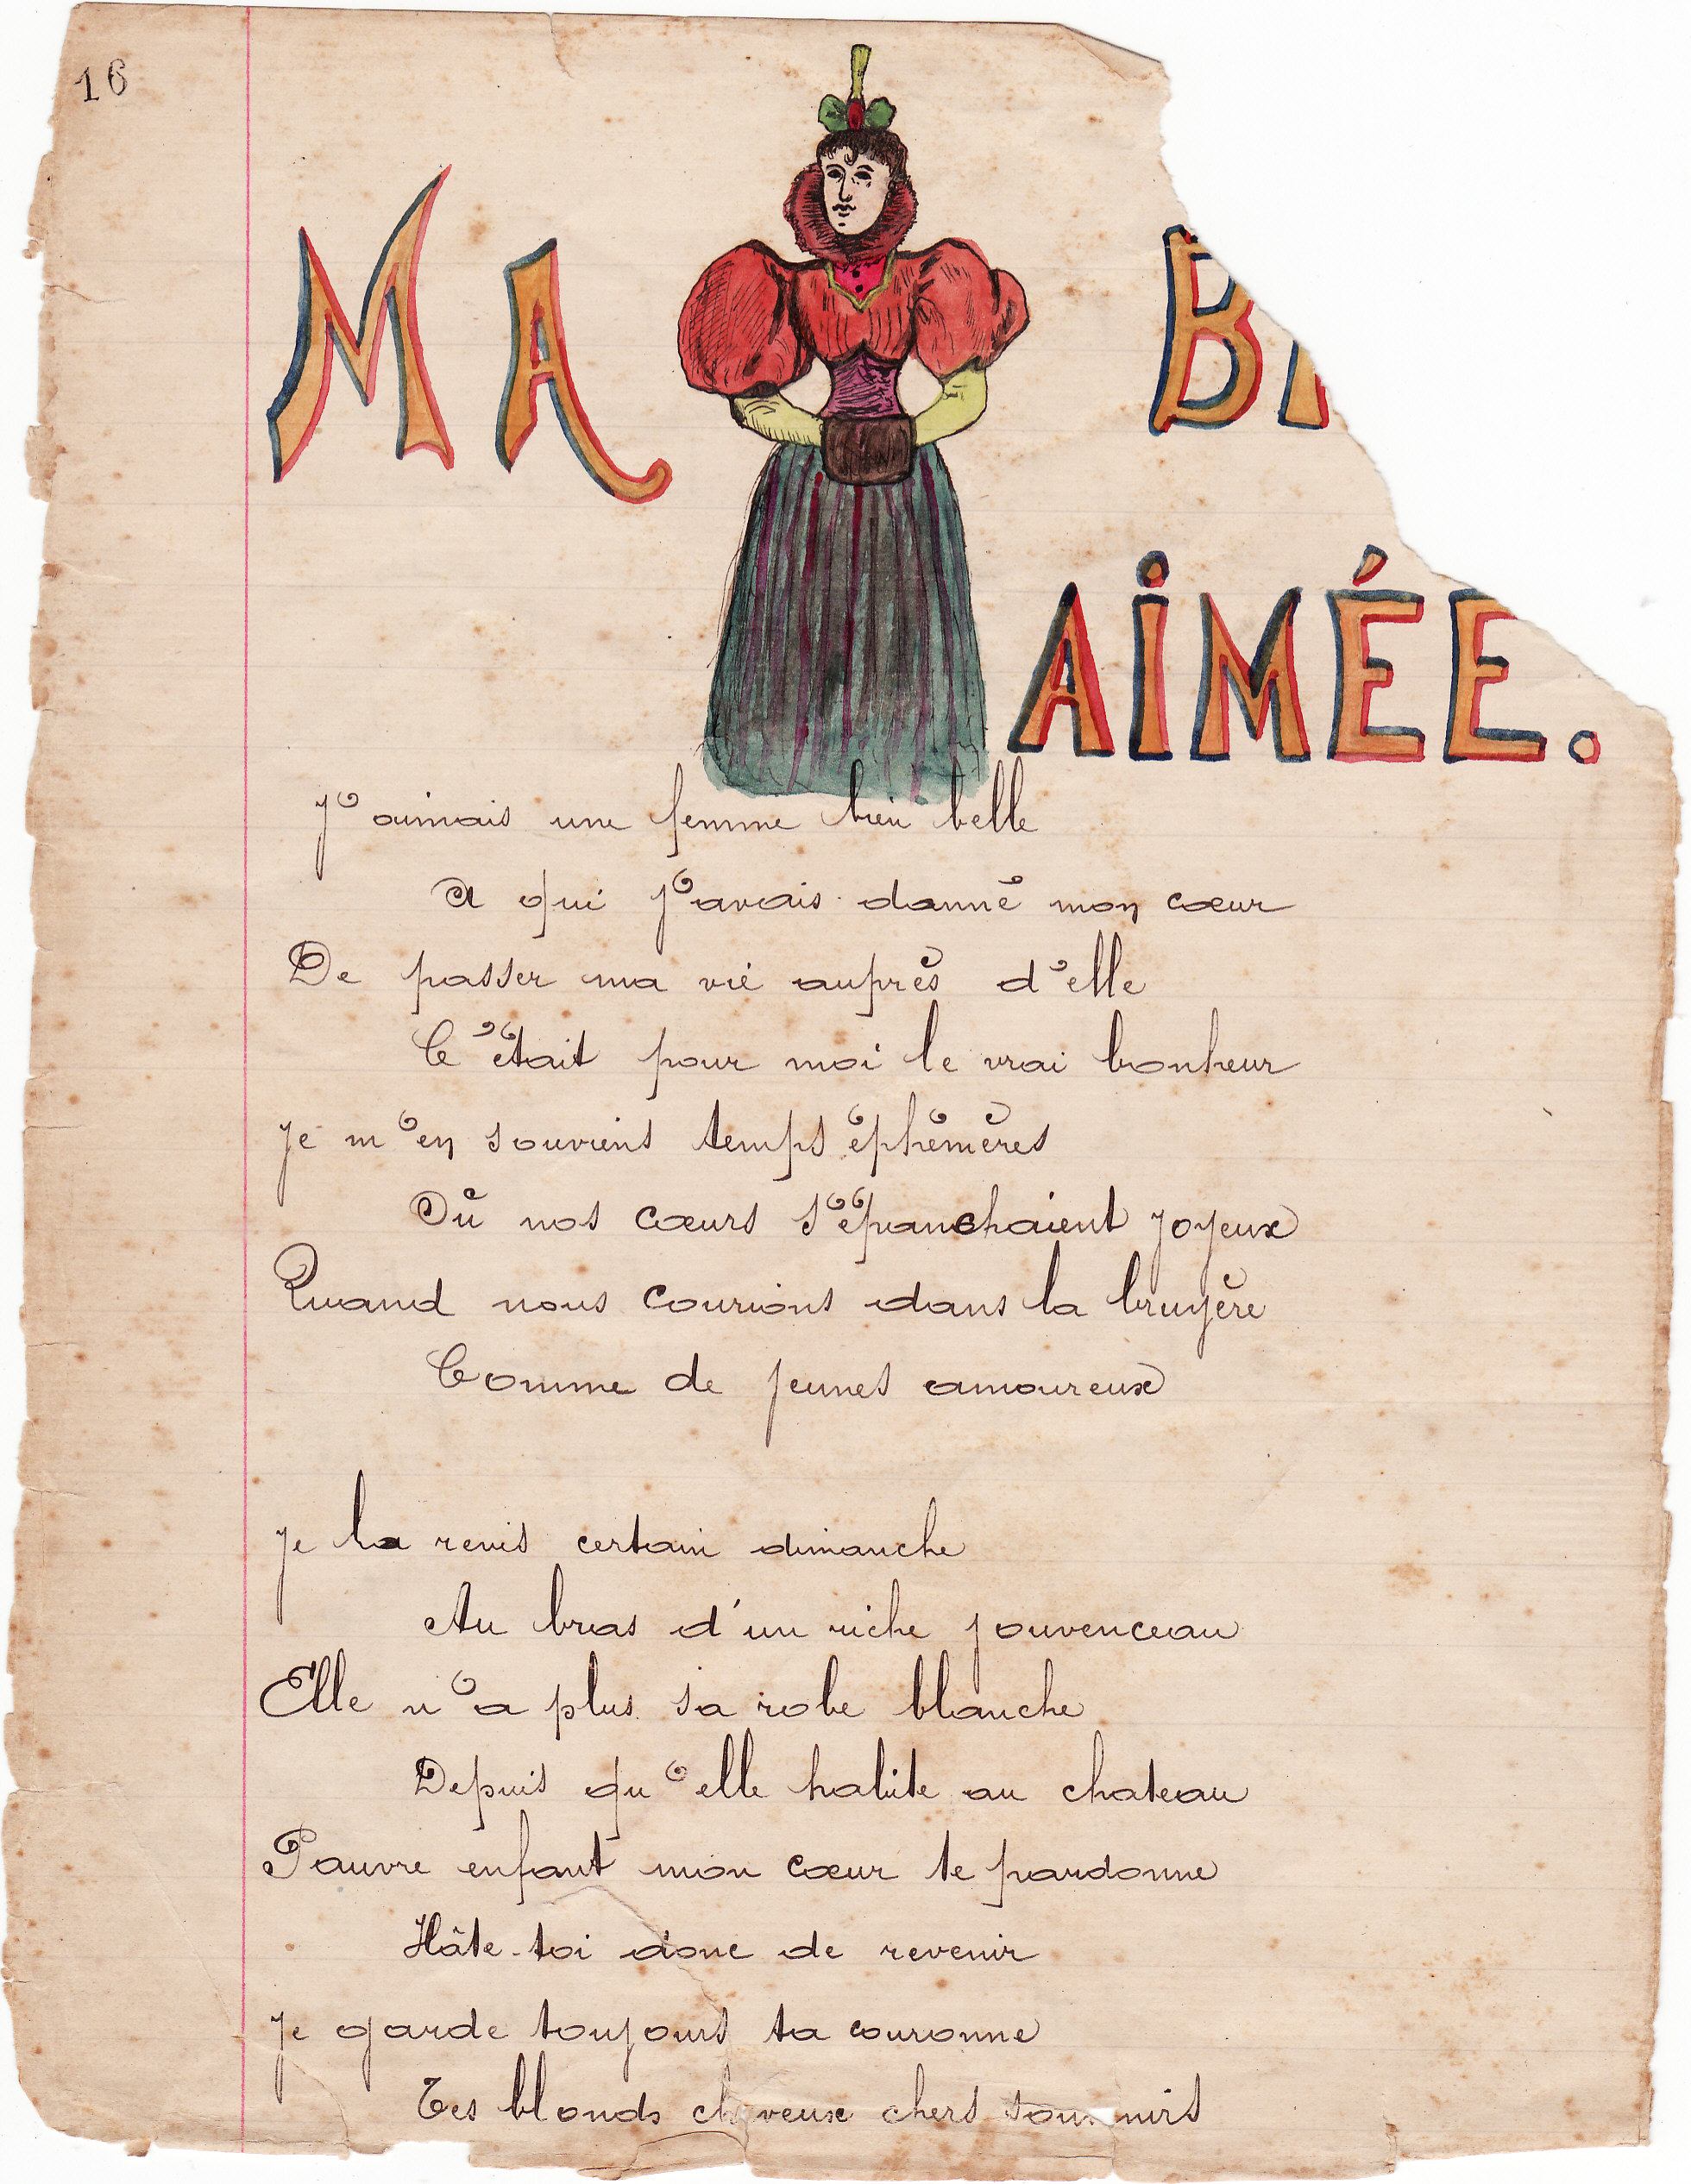 16
MA B
AIMÉE.
J'aimais une femme bien belle
A qui j'avais donné mon cœur
De passer ma vie auprès d'elle
C'était pour moi le vrai bonheur
Je m'en souviens temps éphémères
Où nos cœurs s'épanchaient joyeux
Quand nous courions dans la bruyère
Comme de jeunes amoureux
Je la revis certain dimanche
Au bras d'un riche jouvenceau
Elle n'a plus sa robe blanche
Depuis qu'elle habite au chateau
Pauvre enfant mon cœur te pardonne
Hâte-toi donc de revenir
Je garde toujours ta couronne
Tes blonds cheveux chers souvenirs